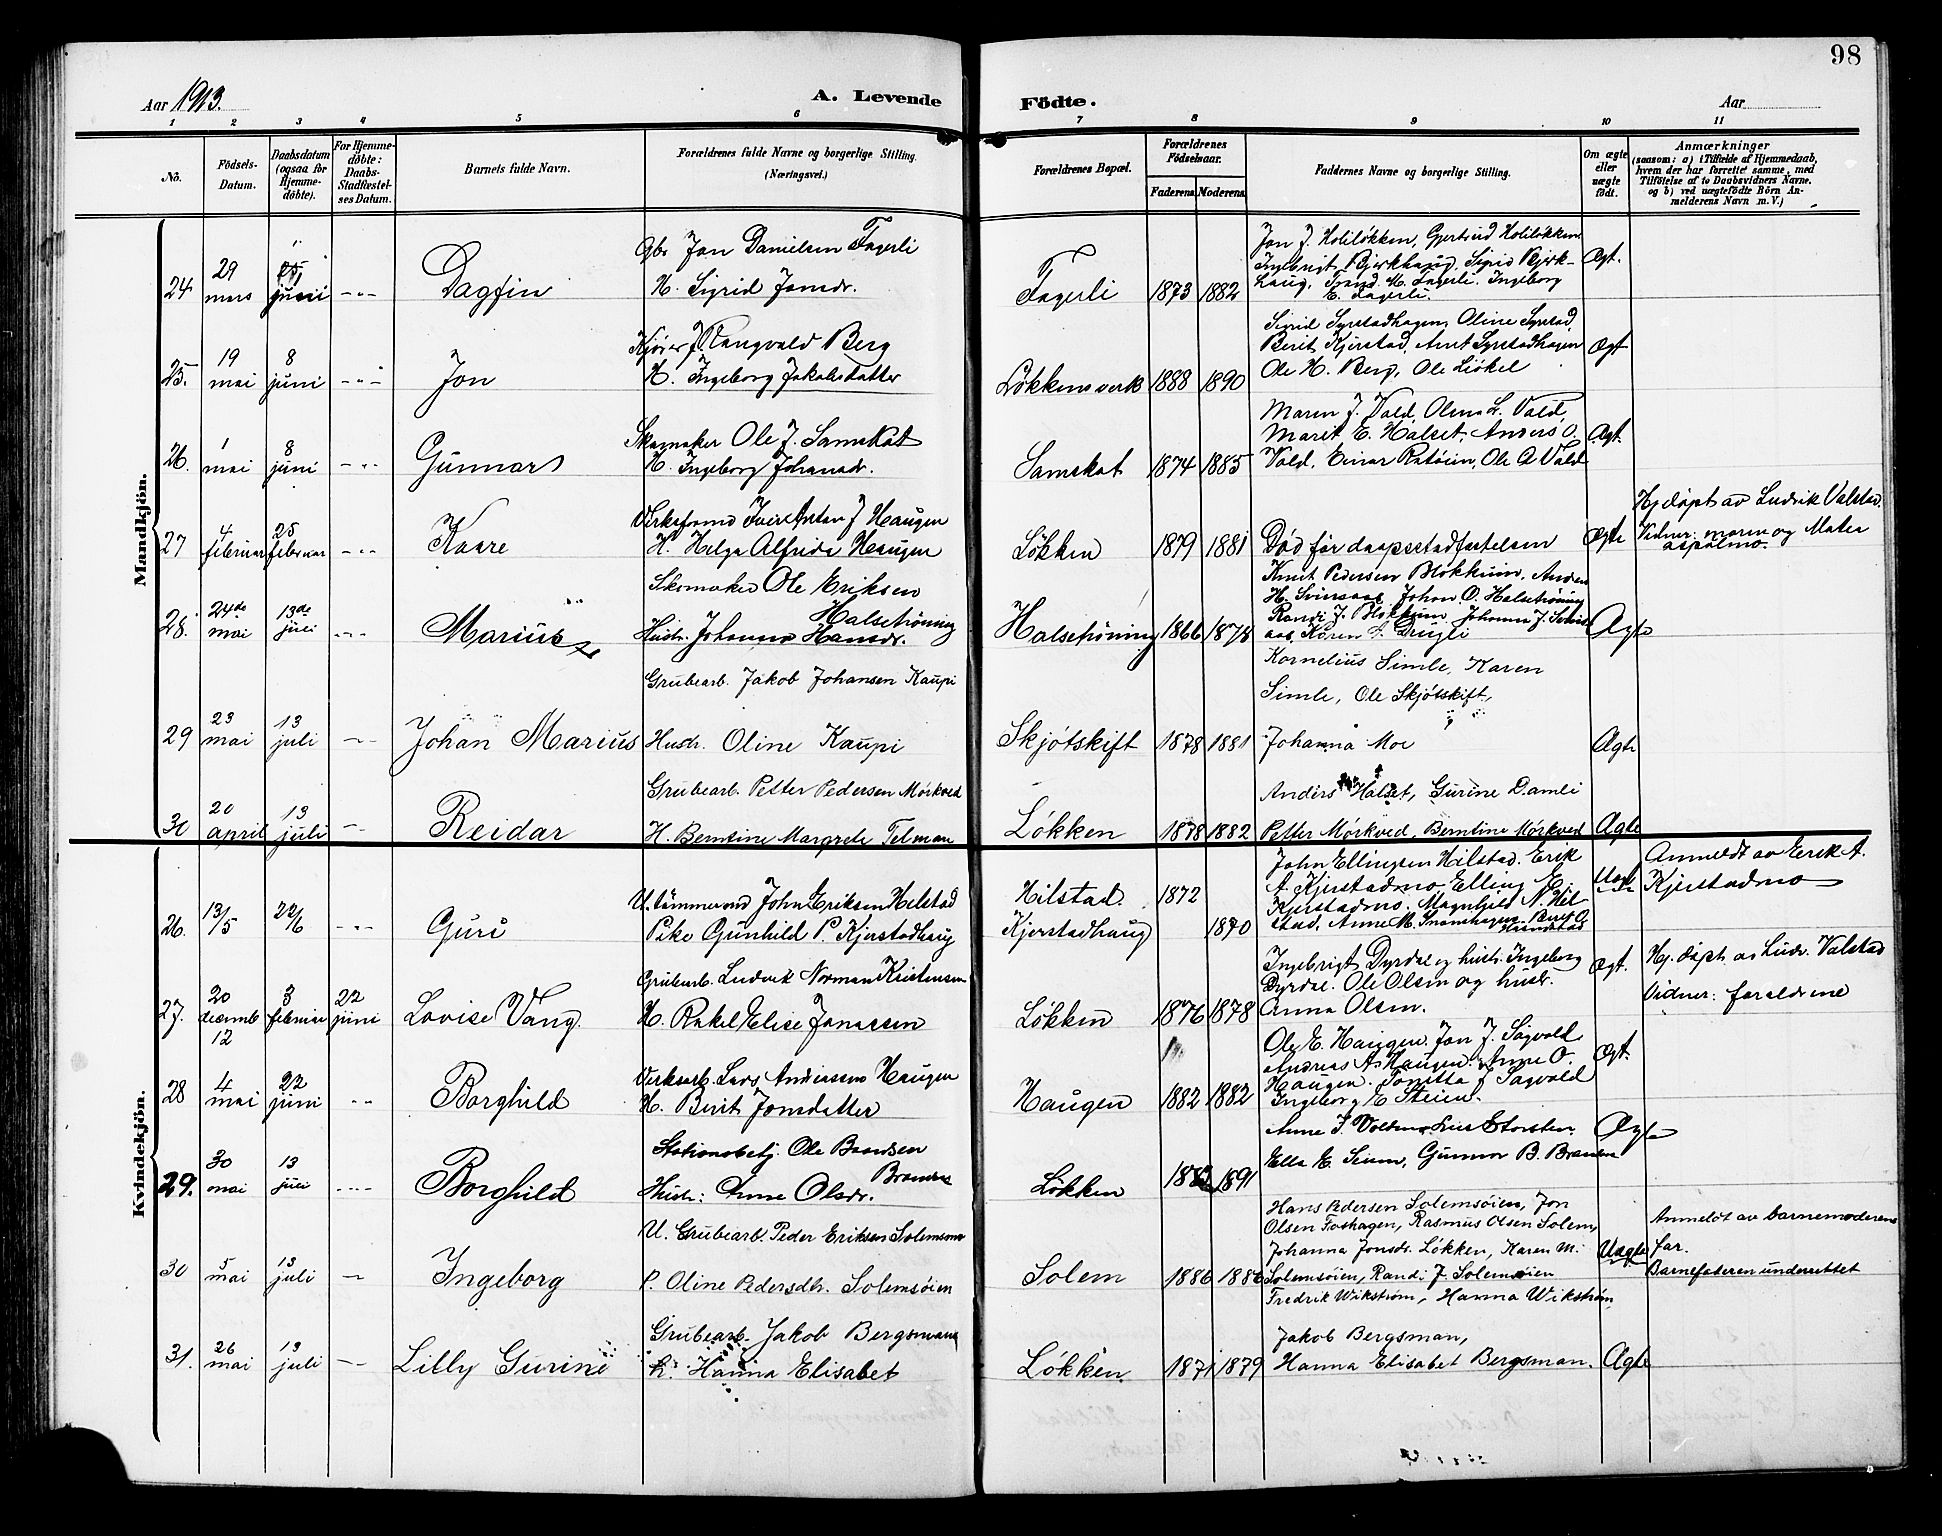 98
Aar 1913.
A. Levende Födte.
Aar
1 2 3 4 5 6 7 8 9 10 11
No.
Födsels-Datum.
Daabsdatum (ogsaa for Hjemme-döbte).
For Hjemme-döbte: Daabs-Stadfæstel-ses Datum.
Barnets fulde Navn.
Forældrenes fulde Navne og borgerlige Stilling.
(Næringsvei.)
Forældrenes Bopæl.
Forældrenes Födselsaar.
Faderens. Moderens.
Faddernes Navne og borgerlige Stilling.
Om ægte eller uægte födt.
Anmærkninger
(saasom: a) i Tilfælde af Hjemmedaab,
hvem der har forrettet samme, med
Tilföielse af to Daabsvidners Navne,
og b) ved uægtefödte Börn An-
melderens Navn m. V.)
Mandkjön.
24 29 mars juni Dagfin
Gbr Jon Danielsen Fagerli
H. Sigrid Jonsdr.
Fagerli 1873 1882
Jon J. Holiløkken, Gjertrud Holiløkken
Ingebrigt Bjerkhaug, Sigrid Bjerk-
haug, Trond M. Fagerli. Ingeborg
E. Fagerli.
Ægt.
25. 19 mai 8 juni Jon
Kjører J. Rangvald Berg
H. Ingeborg Jakobsdatter
Løkkens verk 1888 1890
Sigrid Syrstadhagen, Oline Syrstad,
Berit Kjerstad, Arnt Syrstadhagen
Ole H. Berg, Ole Løkel
Ægt
26. 1 mai 8 juni Gunnar
Skomaker Ole J. Samskot
H. Ingeborg Johansdr.
Samskot 1874 1885
Maren J. Vold, Olina L. Vold,
Marit E. Halset, Anders O.
Vold, Einar Ratøien, Ole O. Vold
Ægt.
27 4 februar 25 februar Kaare
Verksformd Iver Anton J Haugen
H. Helga Alfride Haugen
Løkken 1879 1881
Død før daapsstadfestelsen
Ægte
Hj døpt av Ludvik Valstad.
Vidner: maren og Matea
aspólmo.
28. 24de mai 13de juli Marius
Skomaker Ole Eriksen
Halsetrønning
Hustr. Johanna Hansdr.
Halsetrønning 1866 1878
Knut Pedersen Blokkum, Anders
H. Svinsaas, Johan O. Halsetrøning
Randi J. Blokkum, Johanna J. Svins
aas, Karen S. Drugli
Ægte
29 23 mai 13 juli Johan Marius
Grubearb. Jakob Johansen Kaupi
Hustr. Oline Kaupi
Skjøtskift 1878 1881
Kornelius Simle, Karen
Simle, Ole Skjøtskift,
Johanna Moe
Ægte
30 20 april 13 juli Reidar
Grubearb. Petter Pedersen Mørkved
H. Berntine Margrete Telman
Løkken 1878 1882
Anders Halset, Gurine Damli
Petter Mørkved, Berntine Mørkved
Ægte
Kvindekjön.
26. 13/5 22/6 Guri
U. tømmermd John Eriksen Hilstad
Pike Gunhild P. Kjerstadhaug
Hilstad. 1872
Kjerstadhaug 1870
John Ellingsen Hilstad. Erik
A. Kjerstadmo, Elling E.
Kjerstadmo. Magnhild N. Hil
stad, Anne M. Snoenhagen. Berit O.
Uægt
Anmeldt av Erik A.
Kjerstadmo
27. 20 decemb 12 3 februar 22 juni Lovise Vang.
Grubearb. Ludvik Norman Kristensen
H. Rakel Elise Jonassen
Løkken 1876 1878
Ingebrigt Dyrdal og hustr. Ingeborg
Dyrdal. Ole Olsen og hustr.
Anna Olsen.
Ægt.
Hj. døpt av Ludv. Valstad
Vidner: foraldrene
28 4 mai 22 juni Borghild
Verksarb. Lars Anderssen Haugen
H. Berit Jonsdatter
Haugen 1882 1882
Ole E. Haugen. Jon J. Sagvold
Andreas A. Haugen. Anne O.
Haugen. Tonetta J Sagvold
Ingeborg E Steien.
Ægt.
29. 30 mai 13 juli Borghild
Stationsbetj. Ole Baardsen
Branden
Hustr: Anne Olsdr.
Løkken 1883 1891
Anne J. Volden, Lise Storsten
Ella E. Seium, Gunnar B. Branden
Ægte
30 5 mai 13 juli Ingeborg
U. Grubearb. Peder Eriksen Solemsmo
P. Oline Pedersdtr. Solemsøien
Solem 1886 1886
Hans Pedersen Solemsøien, Jon
Olsen Foshagen, Rasmus Olsen Solem,
Johanna Jonsdr. Løkken, Karen M.
Solemsøien, Randi J. Solemsøien
Uægte
Anmeldt av barnemoderens
far.
Barnefaderen underrettet
31. 26 mai 13 juli Lilly Gurine
Grubearb. Jakob Bergsmann
h. Hanna Elisabet
Løkken. 1871 1879
Fredrik Wikstrøm, Hanna Wikstrøm
Jakob Bergsman,
Hanna Elisabet Bergsman.
Ægte